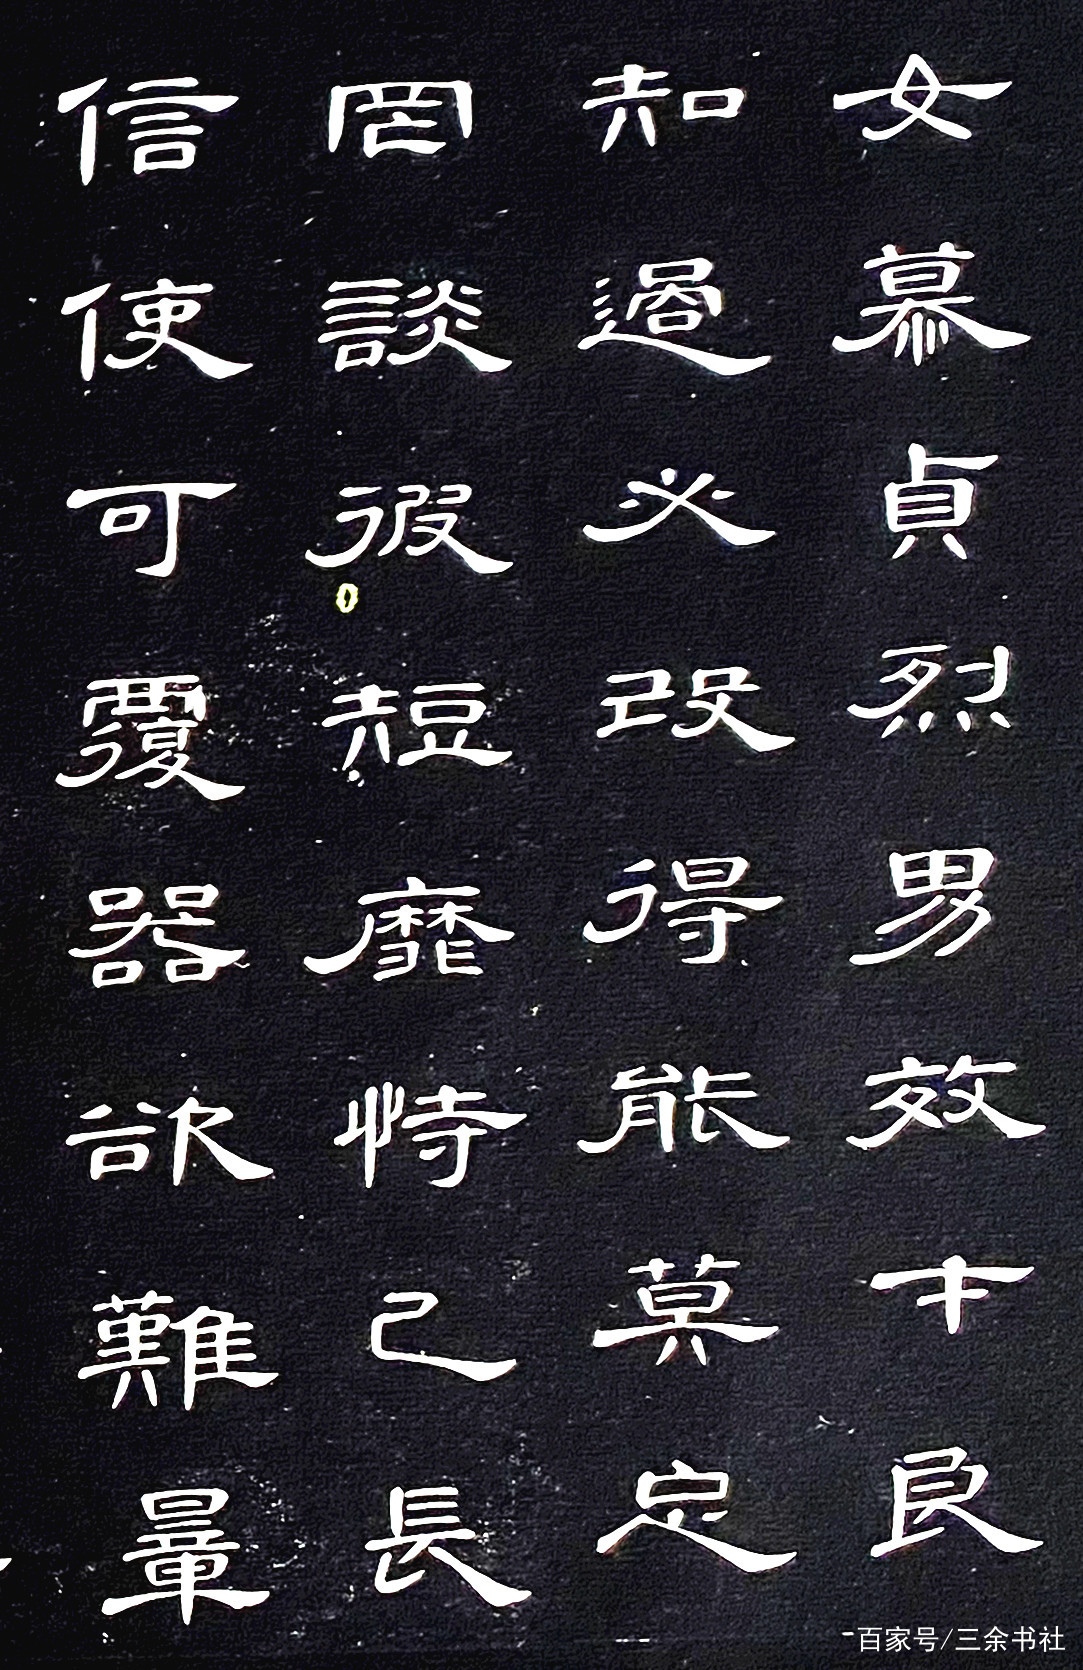 女慕貞烈男效才良
知過必改得能莫忘
罔談彼短靡恃己長
信使可覆器欲難量
百家号/三余书社